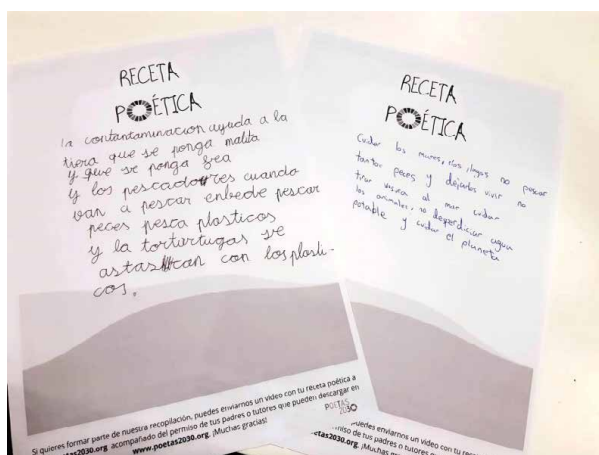 RECETA
POÉTICA
la contantaminacion ayuda a la
tiera que se ponga malita
y que se ponga fea
y los pescadores cuando
van a pescar enbede pescar
peces pesca plasticos
y la torturtugas se
astascan con los plasti-
cos.
Si quieres formar parte de nuestra recopilación, puedes enviarnos un video con tu receta poética a
poetas2030.org acompañado del permiso de tus padres o tutores que pueden descargar en
www.poetas2030.org. ¡Muchas gracias!
POETAS
2030
RECETA
POÉTICA
Cuidar los mares, rios, lagos no pescar
tantos peces y dejarlos vivir no
tirar vasura al mar cuidar
los animales, no desperdiciar agua
potable y cuidar el planeta
puedes enviarnos un video con tu rec
permiso de tus padres o tutores que pue
etas2030.org. ¡Muchas gra